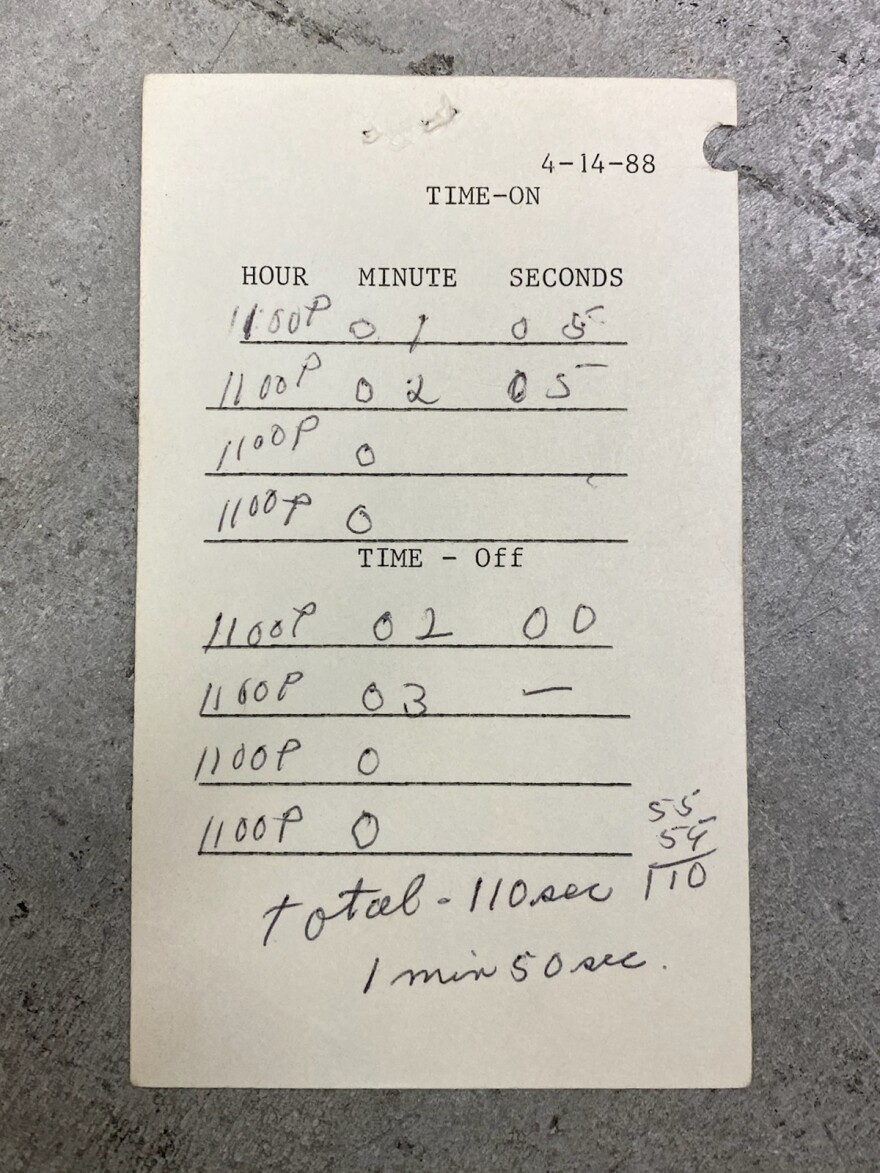 4-14-88
TIME-ON
HOUR MINUTE SECONDS
1100P 01 05
1100P 02 05
1100P 0
1100P 0
TIME - Off
1100P 02 00
1100P 03 —
1100P 0
1100P 0
55
55
110
total - 110 sec
1 min 50 sec.